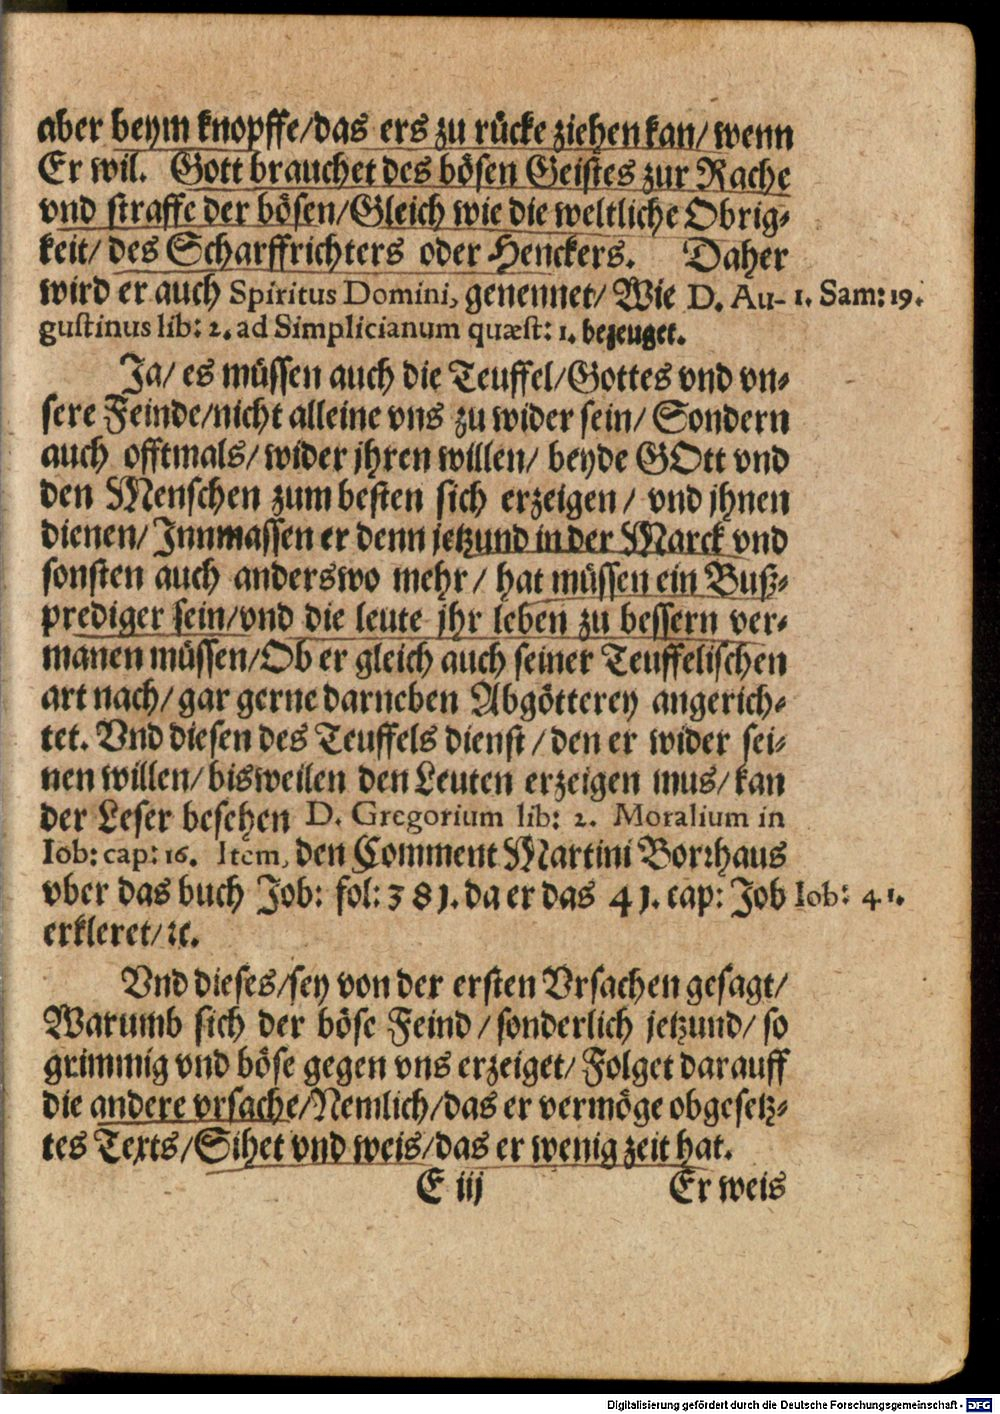 aber beym knopffe/das ers zu rücke ziehen kan/ wenn
Er wil. Gott brauchet des bösen Geistes zur Rache
vnd straffe der bösen/Gleich wie die weltliche Obrig-
keit/ des Scharffrichters oder Henckers. Daher
wird er auch Spiritus Domini, genennet/ Wie D. Au- 1. Sam: 19.
gustinus lib: 2. ad Simplicianum quæst: 1. bezeuget.
Ja/ es müssen auch die Teuffel/Gottes vnd vn-
sere Feinde/nicht alleine vns zu wider sein/ Sondern
auch offtmals/ wider jhren willen/ beyde GOtt vnd
den Menschen zum besten sich erzeigen/ vnd jhnen
dienen/ Innmassen er denn jetzund in der Marck vnd
sonsten auch anderswo mehr/ hat müssen ein Buß-
prediger sein/vnd die leute jhr leben zu bessern ver-
manen müssen/Ob er gleich auch seiner Teuffelischen
art nach/ gar gerne darneben Abgötterey angerich-
tet. Vnd diesen des Teuffels dienst/den er wider sei-
nen willen/ bisweilen den Leuten erzeigen mus/ kan
der Leser besehen D. Gregorium lib: 2. Moralium in
Iob: cap: 16. Item, den Comment Martini Borrhaus
vber das buch Job: fol: 381. da er das 41. cap: Job Iob: 41.
erkleret/ꝛc.
Vnd dieses/sey von der ersten Vrsachen gesagt/
Warumb sich der böse Feind/sonderlich jetzund/ so
grimmig vnd böse gegen vns erzeiget/ Folget darauff
die andere vrsache/Nemlich/das er vermöge obgesetz-
tes Texts/Sihet vnd weis/das er wenig zeit hat.
E iij Er weis
Digitalisierung gefördert durch die Deutsche Forschungsgemeinschaft - DFG